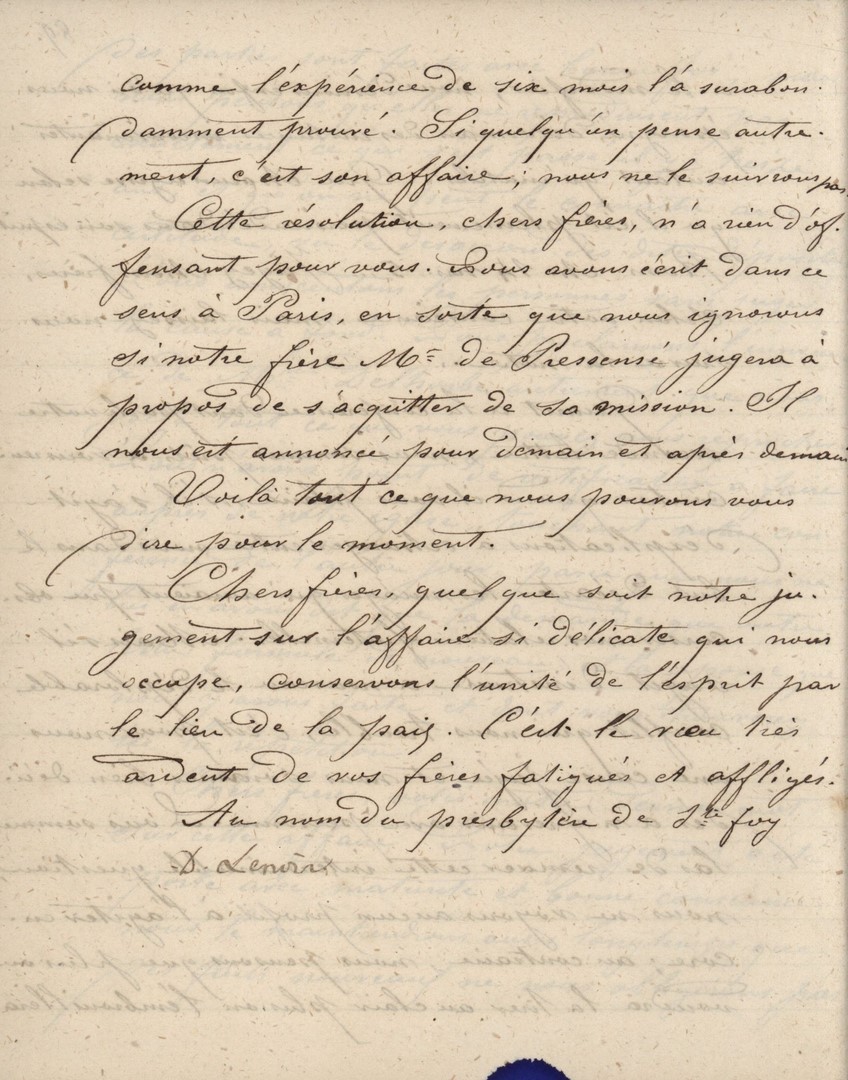 comme l'expérience de six mois l'à surabon-
damment prouvé. Si quelqu'un pense autre-
ment, c'est son affaire; nous ne le suivrons pas.
Cette résolution, chers frères, n'a rien d'of-
fensant pour vous. Nous avons écrit dans ce
sens à Paris, en sorte que nous ignorons
si notre frère Mr de Pressensé jugera à
propos de s'acquitter de sa mission. Il
nous est annoncé pour demain et après demain
Voilà tout ce que nous pouvons vous
dire pour le moment.
Chers frères, quelque soit notre ju-
gement sur l'affaire si délicate qui nous
occupe, conservons l'unité de l'esprit par
le lien de la paix. C'est le vœu très
ardent de vos frères fatigués et affligés.
Au nom du presbytère de Ste foy
D. Lenoir